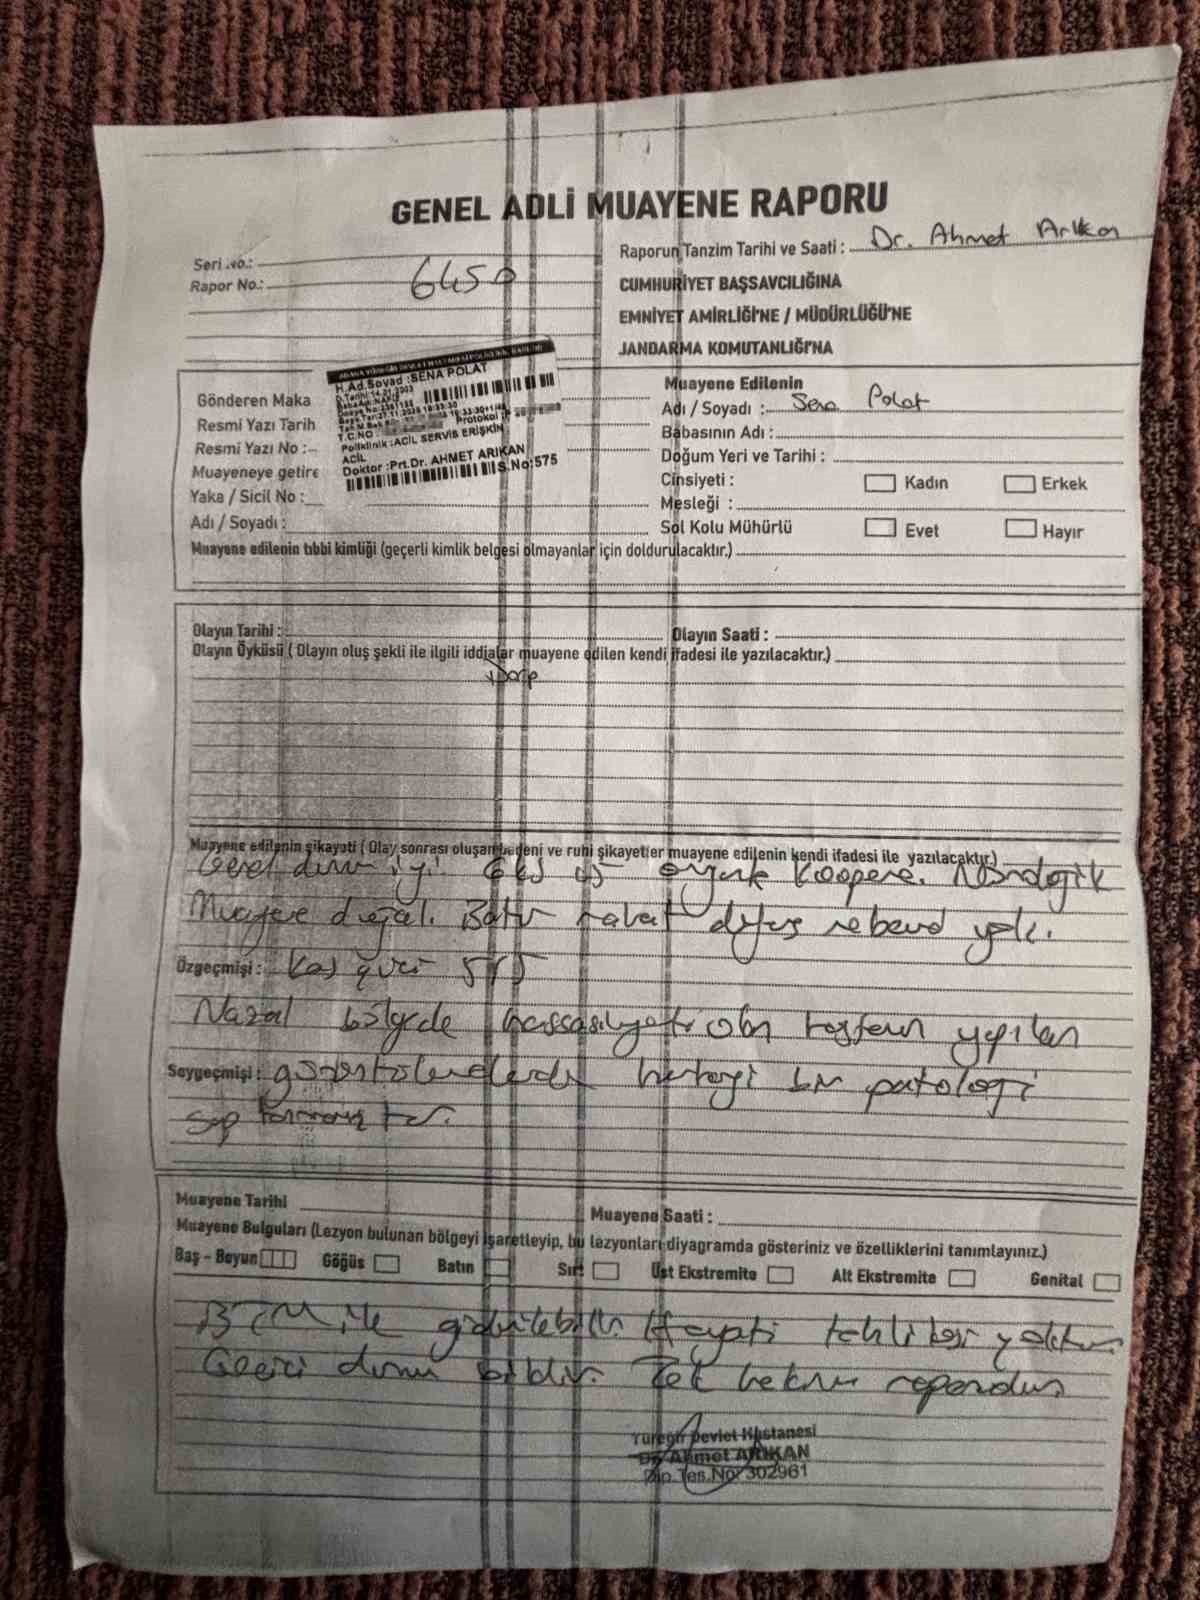 GENEL ADLİ MUAYENE RAPORU
Raporun Tanzim Tarihi ve Saati : Dr. Ahmet Arıkan
Seri No.:
Rapor No.: 6450
CUMHURİYET BAŞSAVCILIĞINA
EMNİYET AMİRLİĞİ'NE / MÜDÜRLÜĞÜ'NE
JANDARMA KOMUTANLIĞI'NA
Gönderen Maka
Resmi Yazı Tarih
Resmi Yazı No :
Muayeneye getire
Yaka / Sicil No :
Adı / Soyadı :
H.Ad.Soyad :SENA POLAT
D.Tarihi:14.01.2003
T.C.NO : Protokol
Poliklinik :ACİL SERVİS ERİŞKİN
ACİL
Doktor :Prt.Dr. AHMET ARIKAN
S.No:575
Muayene Edilenin
Adı / Soyadı : Sena Polat
Babasının Adı :
Doğum Yeri ve Tarihi :
Cinsiyeti : Kadın Erkek
Mesleği :
Sol Kolu Mühürlü Evet Hayır
Muayene edilenin tıbbi kimliği (geçerli kimlik belgesi olmayanlar için doldurulacaktır.)
Olayın Tarihi : Olayın Saati :
Olayın Öyküsü ( Olayın oluş şekli ile ilgili iddialar muayene edilen kendi ifadesi ile yazılacaktır.)
Darp
Muayene edilenin şikayeti ( Olay sonrası oluşan bedeni ve ruhi şikayetler muayene edilenin kendi ifadesi ile yazılacaktır.)
Genel durum iyi. GKS 15 oryante koopere. Nörolojik
Muayene doğal. Batın rahat defans rebound yok.
Özgeçmişi : Kas gücü 5/5
Nazal bölgede hassasiyeti olan hastanın yapılan
Soygeçmişi : görüntülemelerde herhangi bir patoloji
saptanmamıştır.
Muayene Tarihi Muayene Saati :
Muayene Bulguları (Lezyon bulunan bölgeyi işaretleyip, bu lezyonları diyagramda gösteriniz ve özelliklerini tanımlayınız.)
Baş - Boyun Göğüs Batın Sırt Üst Ekstremite Alt Ekstremite Genital
BTM ile giderilebilir. Hayati tehlikesi yoktur.
Geçici durum bildirir. Tek hekim raporudur.
Yüreğir Devlet Hastanesi
Dr. Ahmet ARIKAN
Dip.Tes.No: 302961